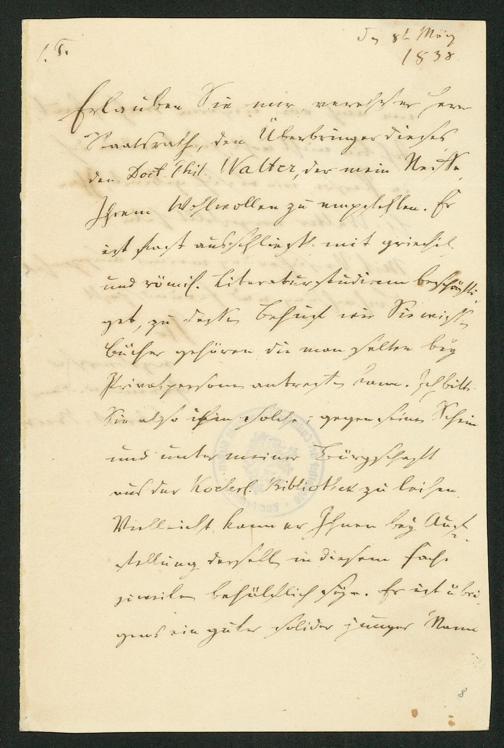 Den 8t. März
1838
Erlauben Sie mir, verehrter Herr
Staatsrath, den Überbringer dieses
den Doct Phil. Walter, der mein Neffe
Ihrem Wohlwollen zu empfehlen. Er
ist fast ausschliessl. mit griechi
und römisch. Literaturstudien beschäfti
get, zu deren Behufe
Bücher gehören die man selten bey
Privatpersonen antreffen kann. Ich bitte
Sie also ihm solche gegen seinen Schein
und unter meiner Bürgschaft
aus der Bibliothek zu leihen.
Vielleicht kann er Ihnen bey Auf
stellung derselb. in diesem Fache
zuweilen behülflich seyn. Er ist übri
gens ein guter solider junger Mann
8